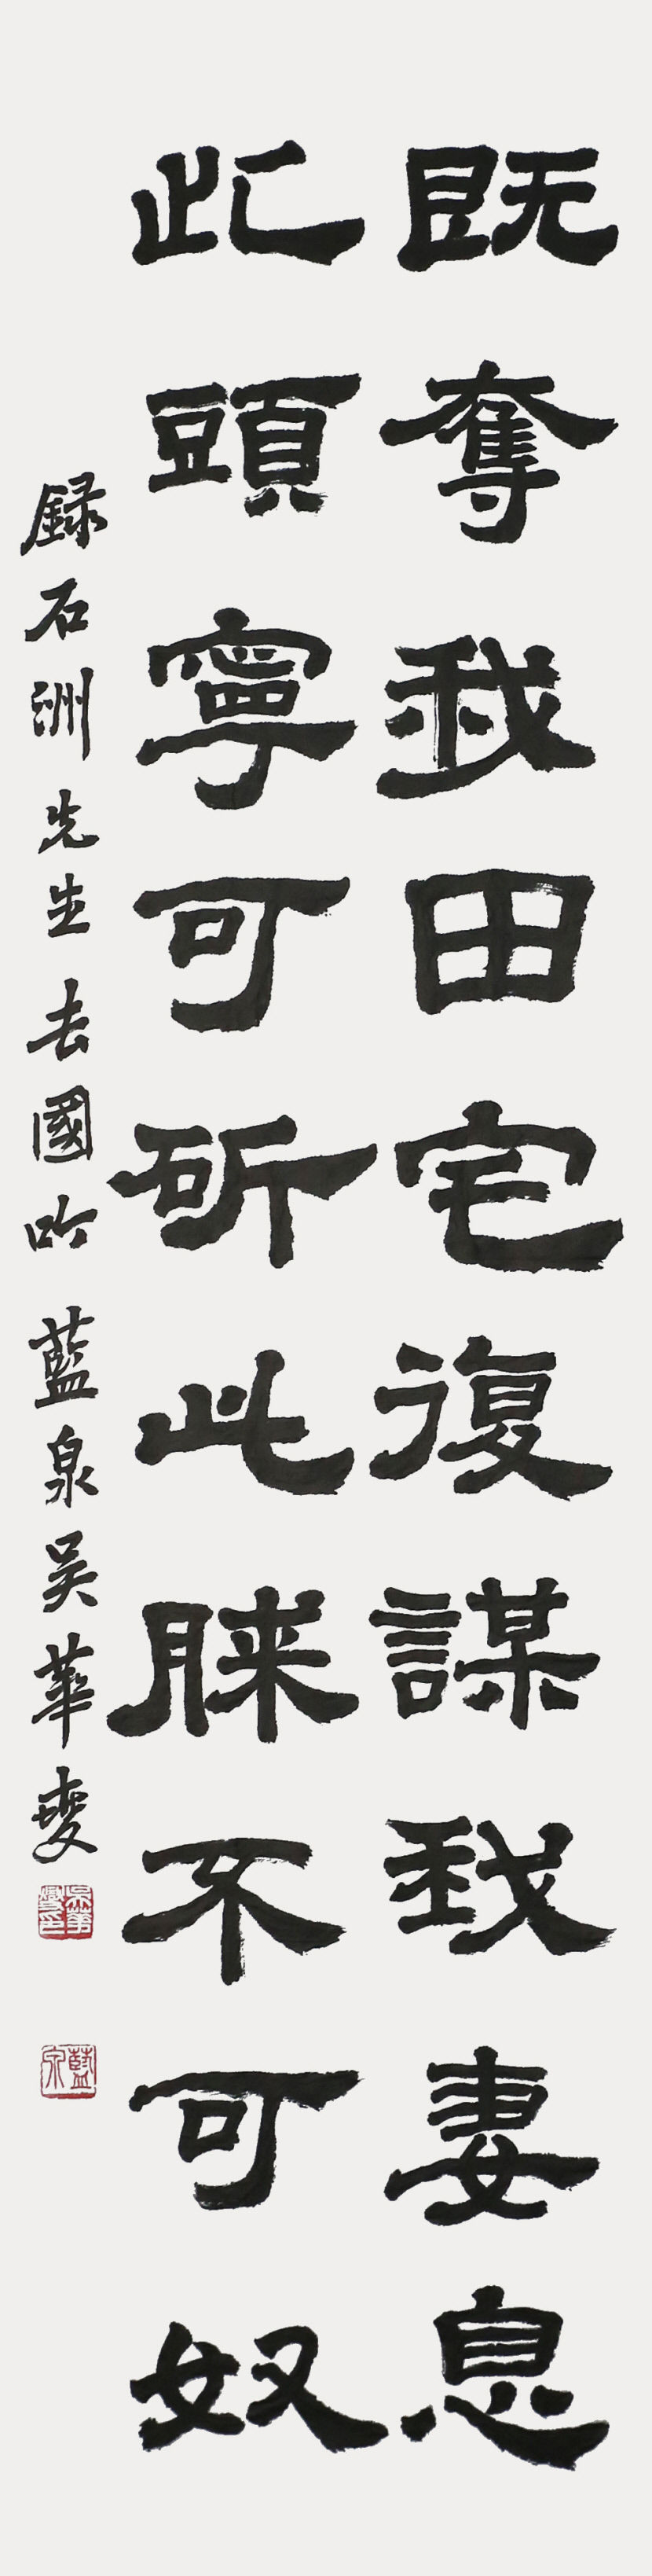 既奪我田宅復謀我妻息
此頭寧可斫此膝不可奴
録石洲先生去國吟 藍泉吴華
藍泉